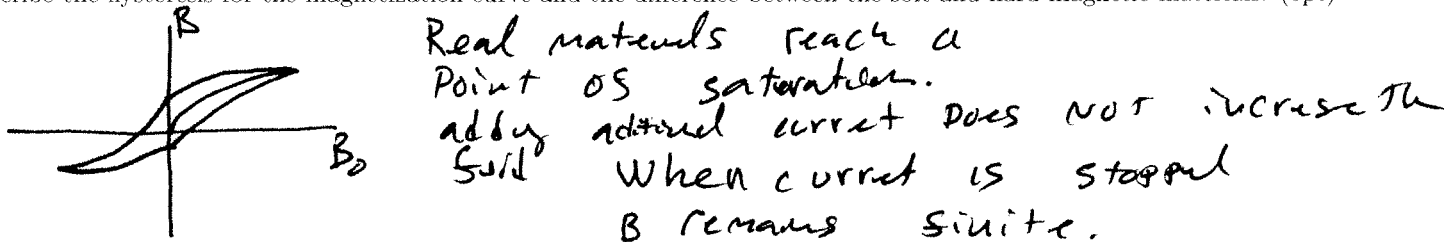 cribe the hysteresis for the magnetization curve and the difference between the soft and hard magnetic materials. (5pt)
B
Real materials reach a
Point of saturation.
adding aditional curret Does NOT increase the
B₀
feild When curret is stopped
B remains finite.